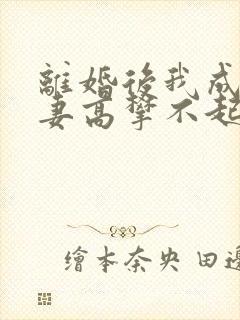 離婚後我成
妻高攀不起
繪本奈央 田邊